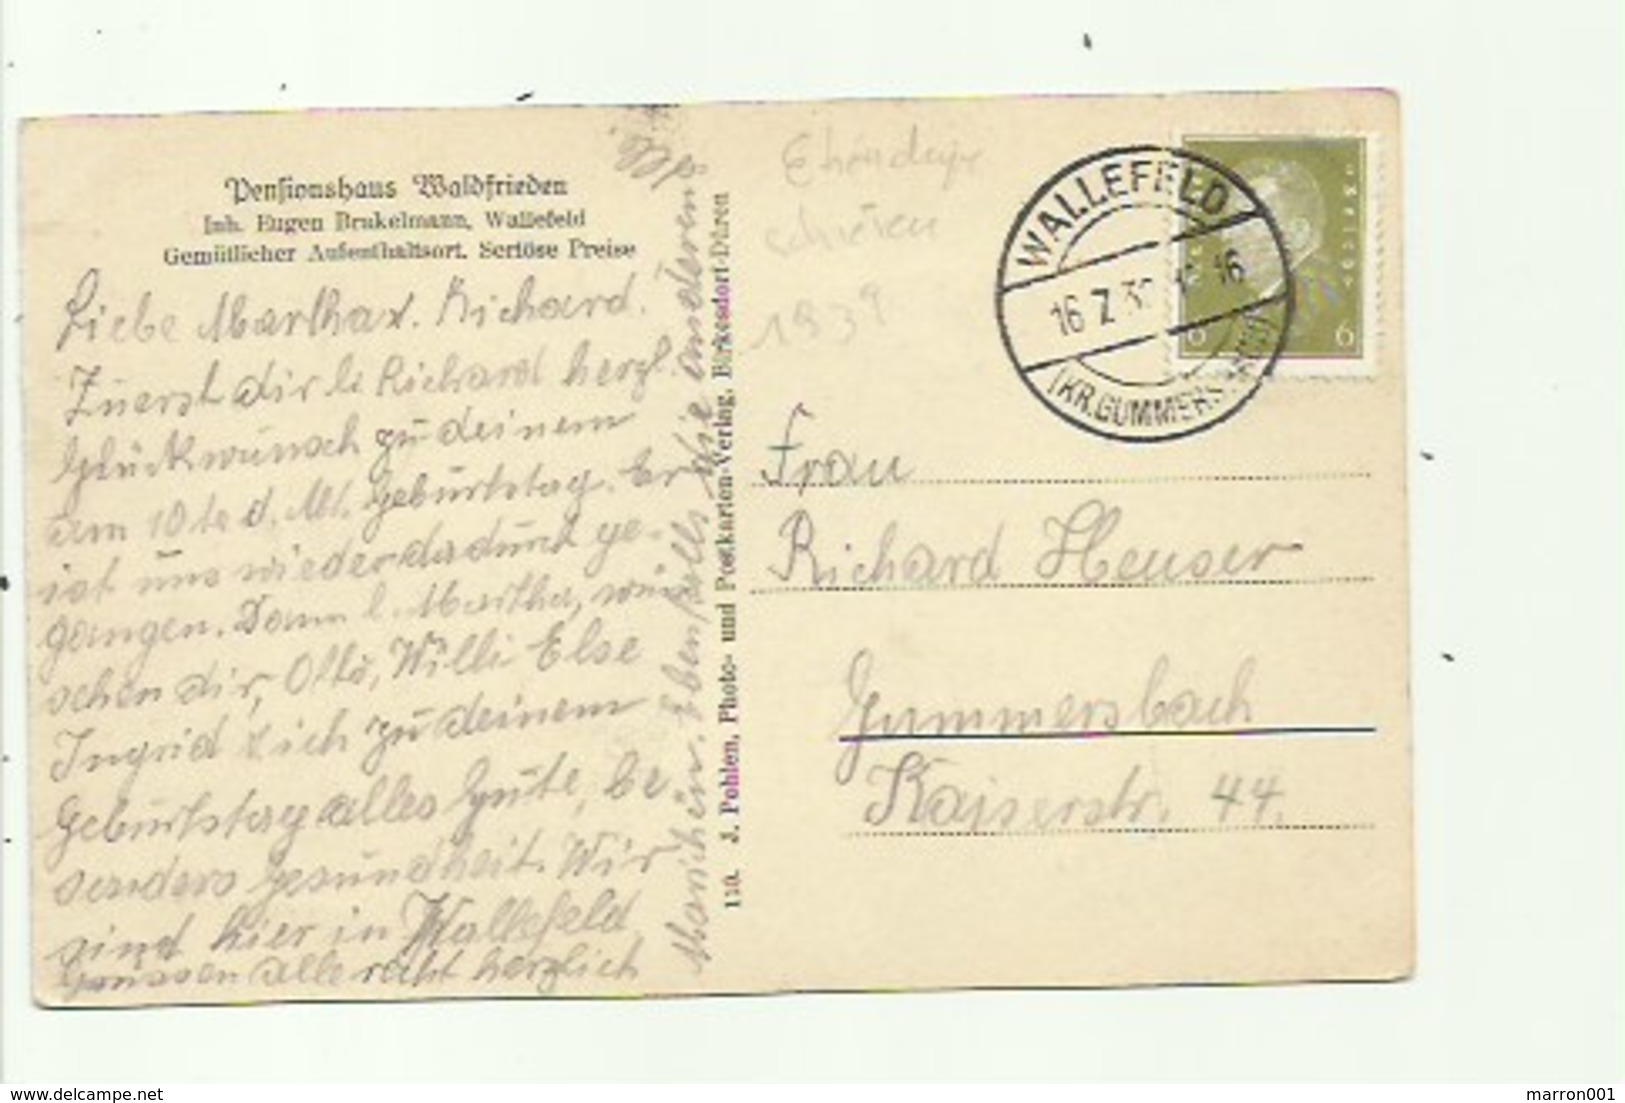 Pensionshaus Waldfrieden
Inh. Eugen Brakelmann, Wallefeld
Gemütlicher Aufenthaltsort. Seriöse Preise
Liebe Martha u. Richard.
Zuerst dir li Richard herzl.
Glückwunsch zu deinem
am 10 te d. Mt. Geburtstag. Er
ist uns wieder dadurch ge-
gangen. Dann l. Martha, wün
schen dir, Otto, Willi Else
Ingrid & ich zu deinem
Geburtstag alles Gute, be
sonders Gesundheit. Wir
sind hier in Wallefeld
Grüssen alle recht herzlich
Mariechen. Ebenfalls die anderen
110. J. Pohlen, Photo- und Postkarten-Verlag, Birkesdorf-Düren
1939
WALLEFELD
16 7 32 16
(KR. GUMMERSBACH)
Deutsches Reich
6 6
Frau
Richard Heuser
Gummersbach
Kaiserstr. 44.
marron001